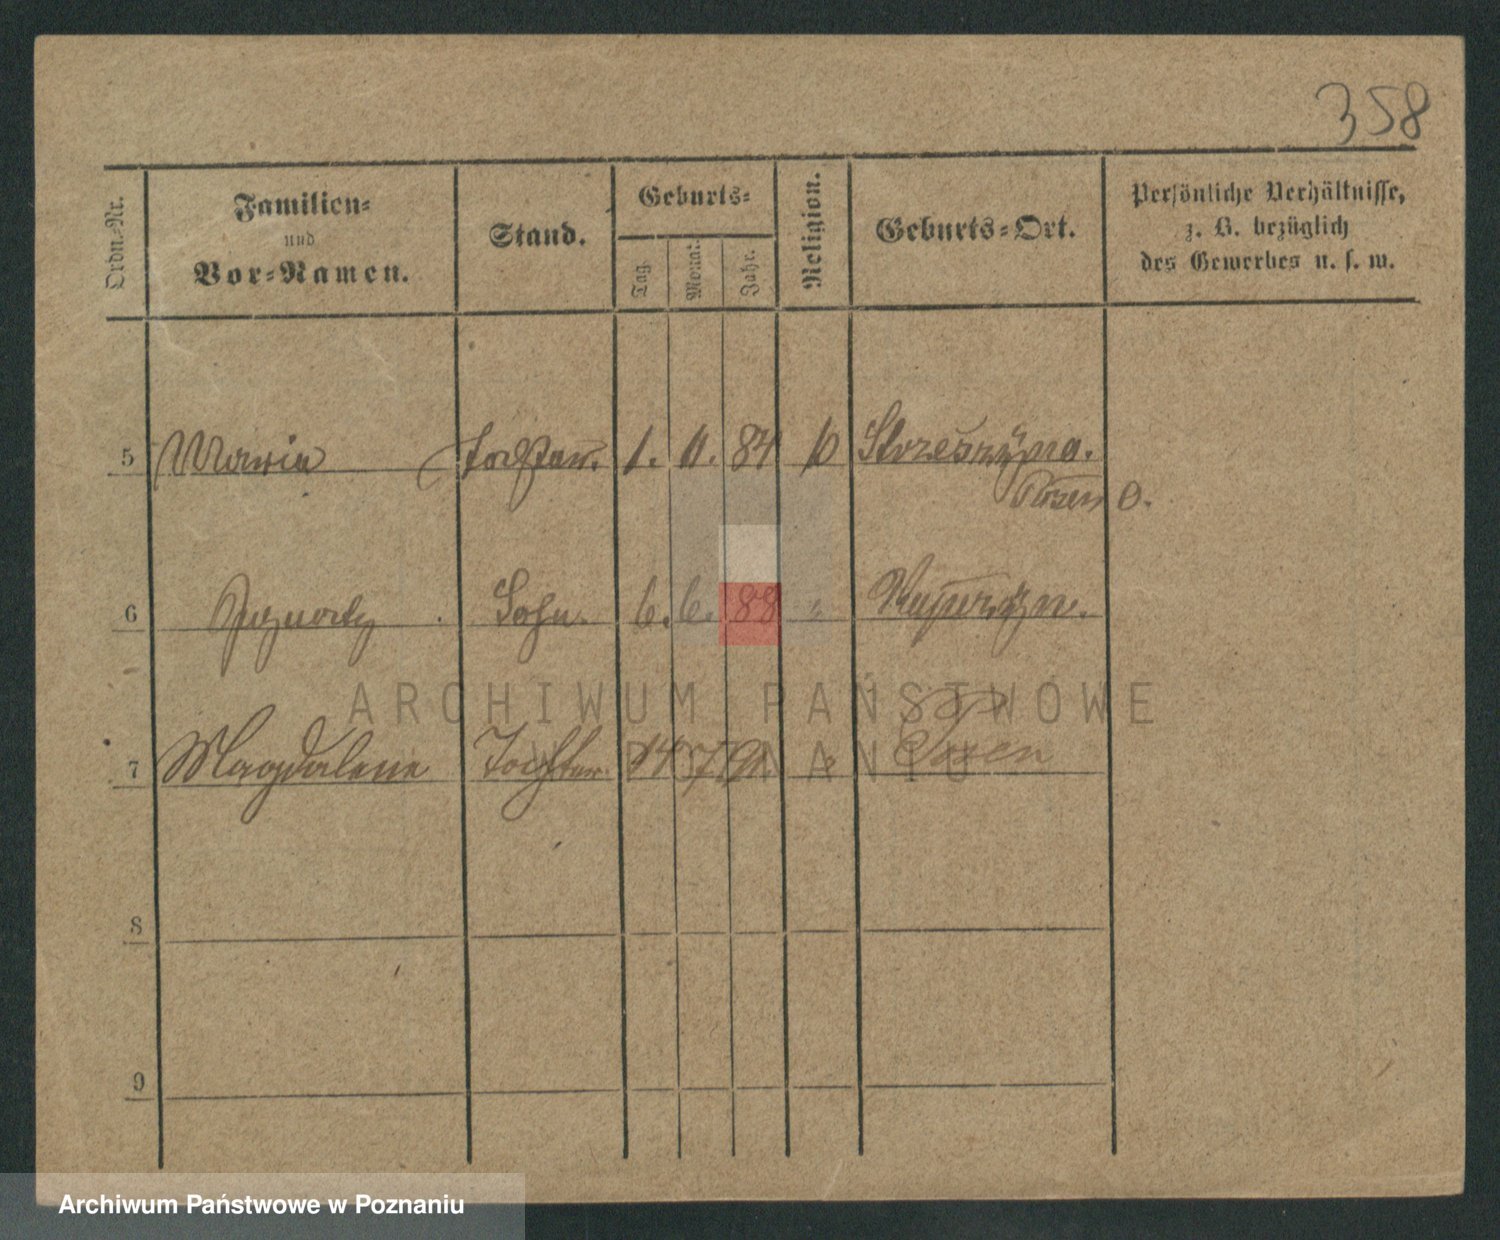 358
Ordn.-Nr.
Familien-
und
Vor-Namen.
Stand.
Geburts-
Tag.
Monat.
Jahr.
Religion.
Geburts-Ort.
Persönliche Verhältnisse,
z. B. bezüglich
des Gewerbes u. s. w.
5 Maria Tochter. 1. 11. 84
Posen O.
6 Sohn. 6. 6. 88 "
7 Magdalene Tochter. 14 7 91 " Posen
8
9
ARCHIWUM PAŃSTWOWE
W POZNANIU
Archiwum Państwowe w Poznaniu